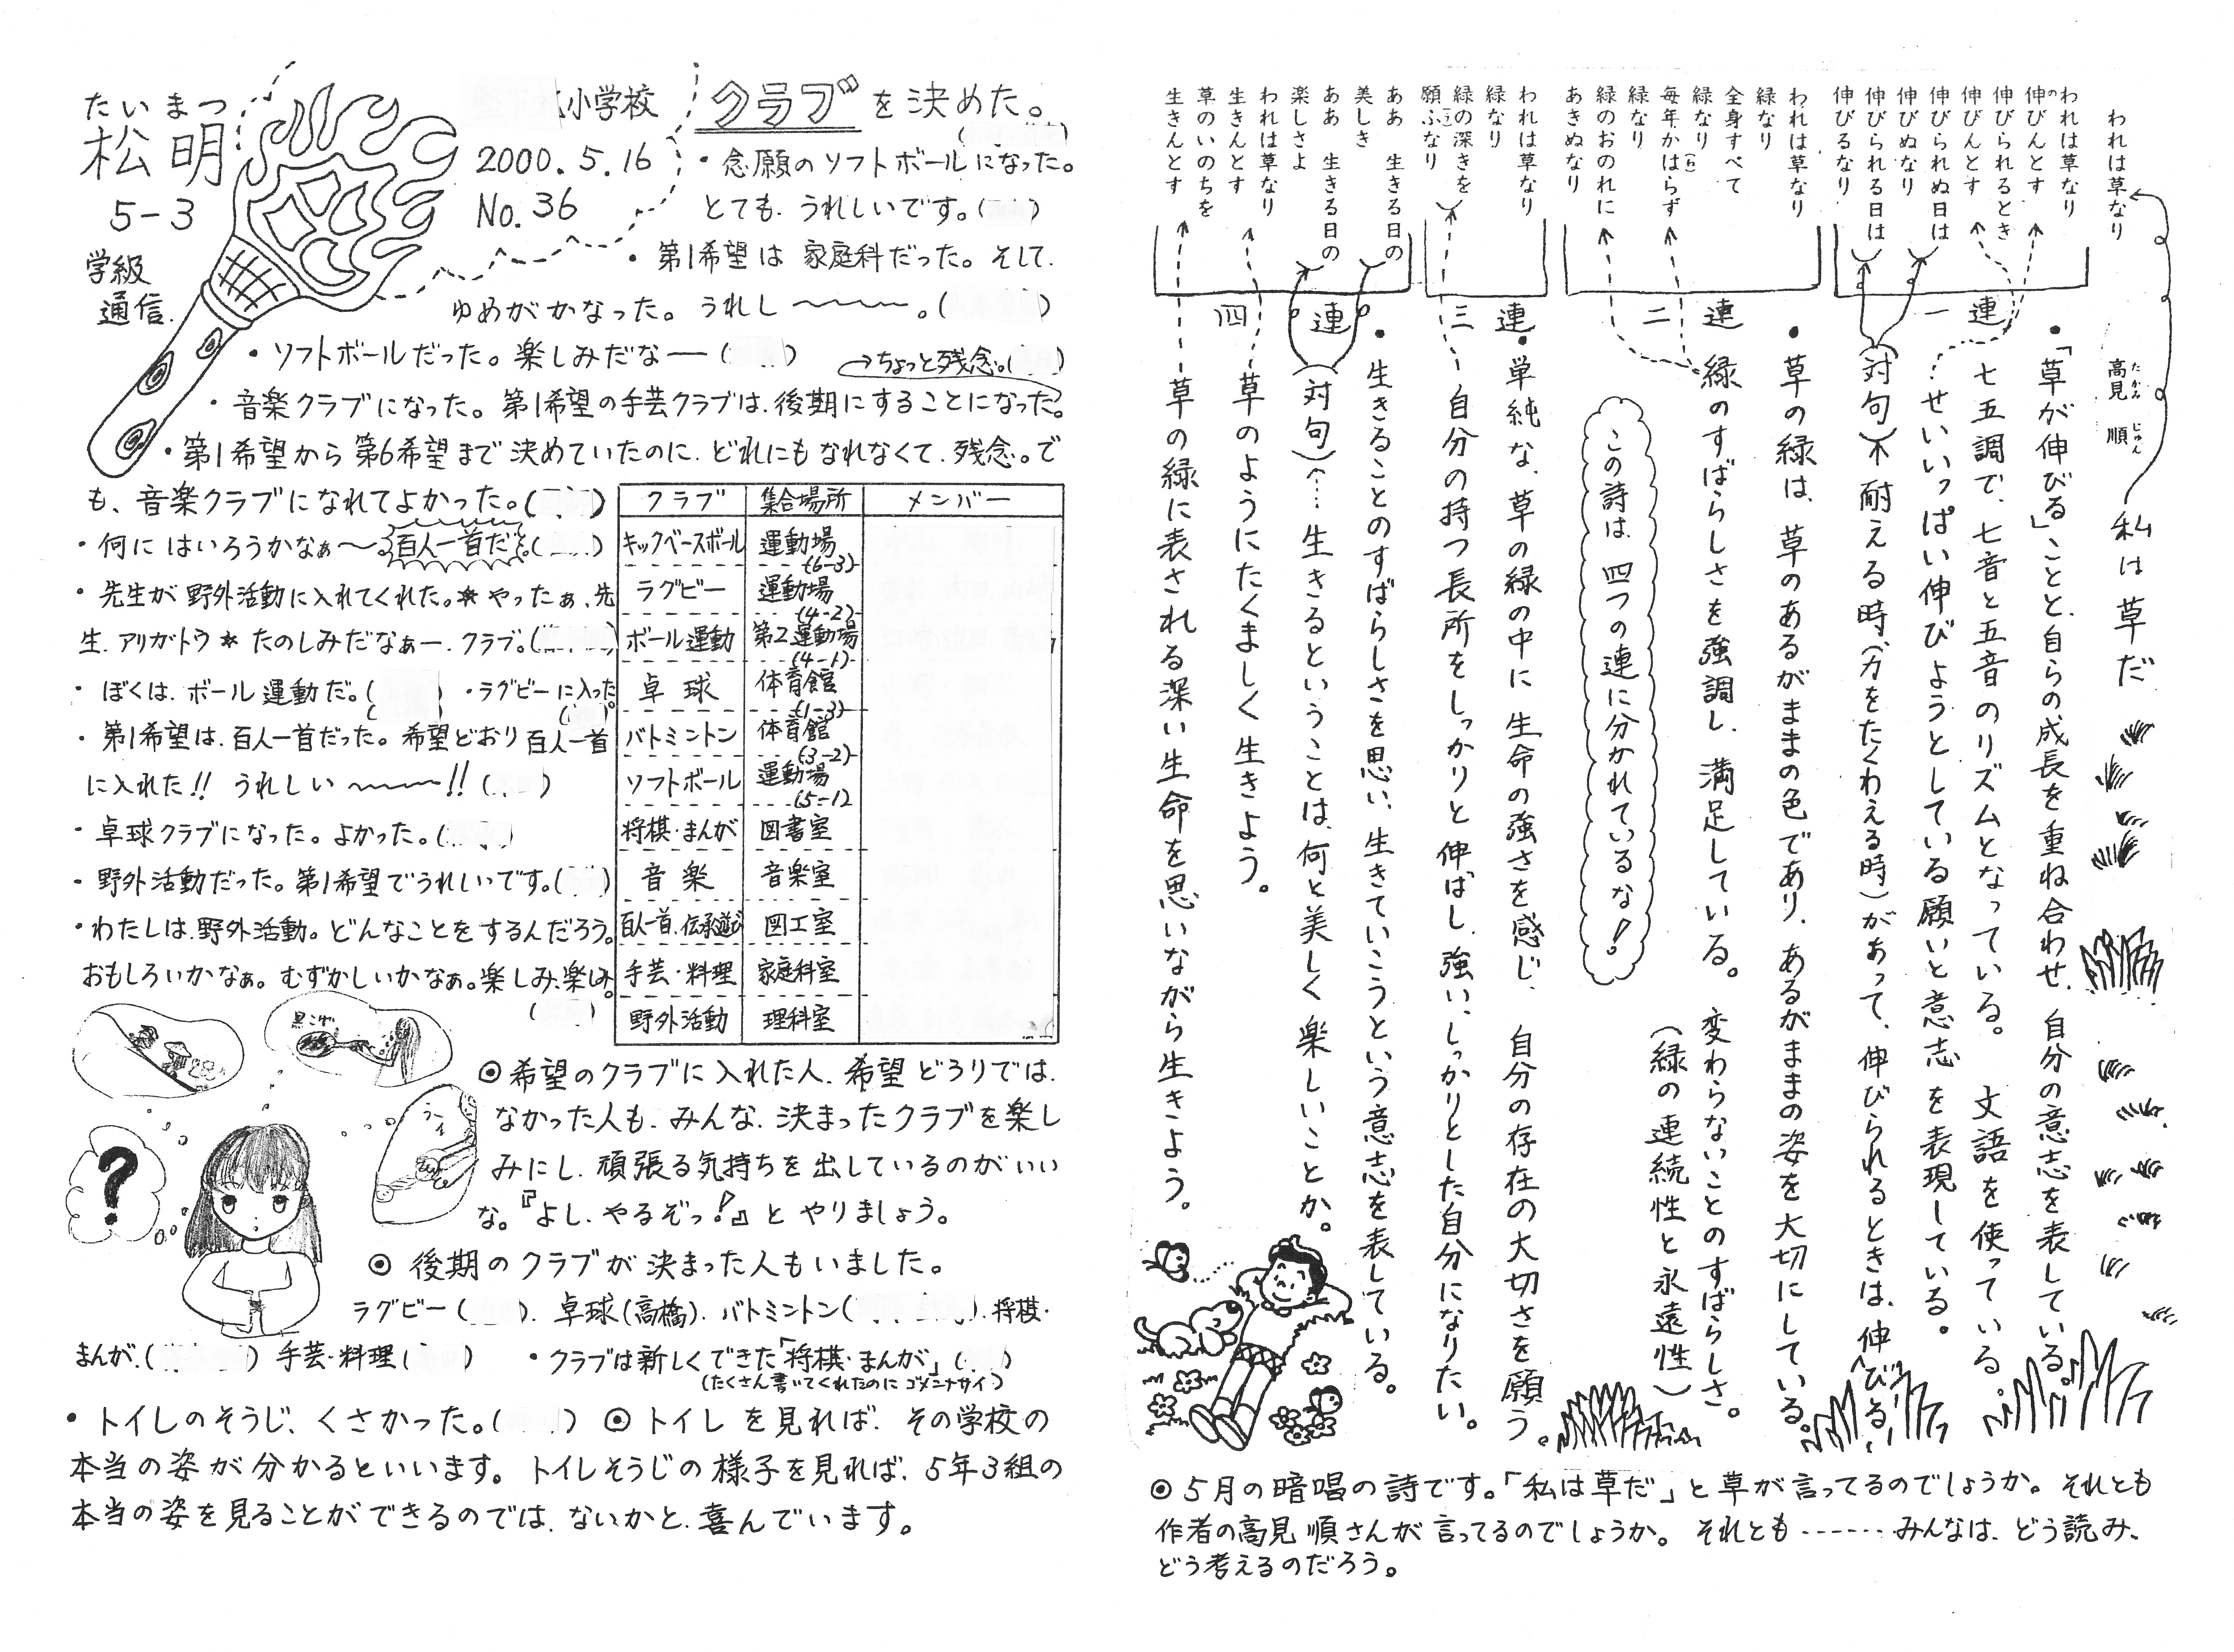 たいまつ
松明
5-3
学級
通信.
小学校
2000.5.16
No.36
クラブを決めた。
・念願のソフトボールになった。
とても、うれしいです。( )
・第1希望は 家庭科だった。そして、
ゆめがかなった。うれし〜〜〜。( )
・ソフトボールだった。楽しみだなー( )
→ちょっと残念。( )
・音楽クラブになった。第1希望の手芸クラブは、後期にすることになった。
・第1希望から第6希望まで決めていたのに、どれにもなれなくて、残念。で
も、音楽クラブになれてよかった。( )
・何に はいろうかなぁ〜。百人一首だ。( )
・先生が野外活動に入れてくれた。*やったぁ、先
生、アリガトウ*たのしみだなぁー、クラブ。( )
・ぼくは、ボール運動だ。( ) ・ラグビーに入った。( )
・第1希望は、百人一首だった。希望どおり百人一首
に入れた!! うれしい〜〜〜!! ( )
・卓球クラブになった。よかった。( )
・野外活動だった。第1希望でうれしいです。( )
・わたしは、野外活動。どんなことをするんだろう。
おもしろいかなぁ。むずかしいかなぁ。楽しみ、楽しみ。
( )
クラブ 集合場所 メンバー
キックベースボール 運動場(6-3)
ラグビー 運動場(4-2)
ボール運動 第2運動場(4-1)
卓球 体育館(1-3)
バトミントン 体育館(3-2)
ソフトボール 運動場(5-1)
将棋・まんが 図書室
音楽 音楽室
百人一首、伝承遊び 図工室
手芸・料理 家庭科室
野外活動 理科室
黒こげ
?
◎希望のクラブに入れた人、希望どうりでは、
なかった人も、みんな、決まったクラブを楽し
みにし、頑張る気持ちを出しているのがいい
な。『よし、やるぞっ!』とやりましょう。
◎後期のクラブが決まった人もいました。
ラグビー( )、卓球(高橋)、バトミントン( )、将棋・
まんが、( )手芸・料理( )
・クラブは新しくできた「将棋・まんが」( )
(たくさん書いてくれたのにゴメンナサイ)
・トイレのそうじ、くさかった。( ) ◎トイレを見れば、その学校の
本当の姿が分かるといいます。トイレそうじの様子を見れば、5年3組の
本当の姿を見ることができるのでは、ないかと、喜んでいます。
われは草なり
高見 順
たかみ じゅん
私は草だ
われは草なり
伸びんとす
の
伸びられるとき
伸びんとす
伸びられぬ日は
伸びぬなり
伸びられる日は
伸びるなり
一連
・「草が伸びる」ことと、自らの成長を重ね合わせ、自分の意志を表している。
七五調で、七音と五音のリズムとなっている。文語を使っている。
…せいいっぱい伸びようとしている願いと意志を表現している。
(対句)不耐える時、(力をたくわえる時)があって、伸びられるときは、伸びる。
われは草なり
緑なり
全身すべて
緑なり
毎年かはらず
(わ)
緑なり
緑のおのれに
あきぬなり
二連
・草の緑は、草のあるがままの色であり、あるがままの姿を大切にしている。
緑のすばらしさを強調し、満足している。変わらないことのすばらしさ。
(緑の連続性と永遠性)
この詩は、四つの連に分かれているな!
われは草なり
緑なり
緑の深きを
願ふなり
(う)
三連
・単純な、草の緑の中に生命の強さを感じ、自分の存在の大切さを願う。
自分の持つ長所をしっかりと伸ばし、強い、しっかりとした自分になりたい。
ああ 生きる日の
美しき
ああ 生きる日の
楽しさよ
われは草なり
生きんとす
草のいのちを
生きんとす
四連
・生きることのすばらしさを思い、生きていこうという意志を表している。
(対句)←…生きるということは、何と美しく楽しいことか。
草のようにたくましく生きよう。
草の緑に表される深い生命を思いながら生きよう。
◎5月の暗唱の詩です。「私は草だ」と草が言ってるのでしょうか。それとも
作者の高見順さんが言ってるのでしょうか。それとも……みんなは、どう読み、
どう考えるのだろう。